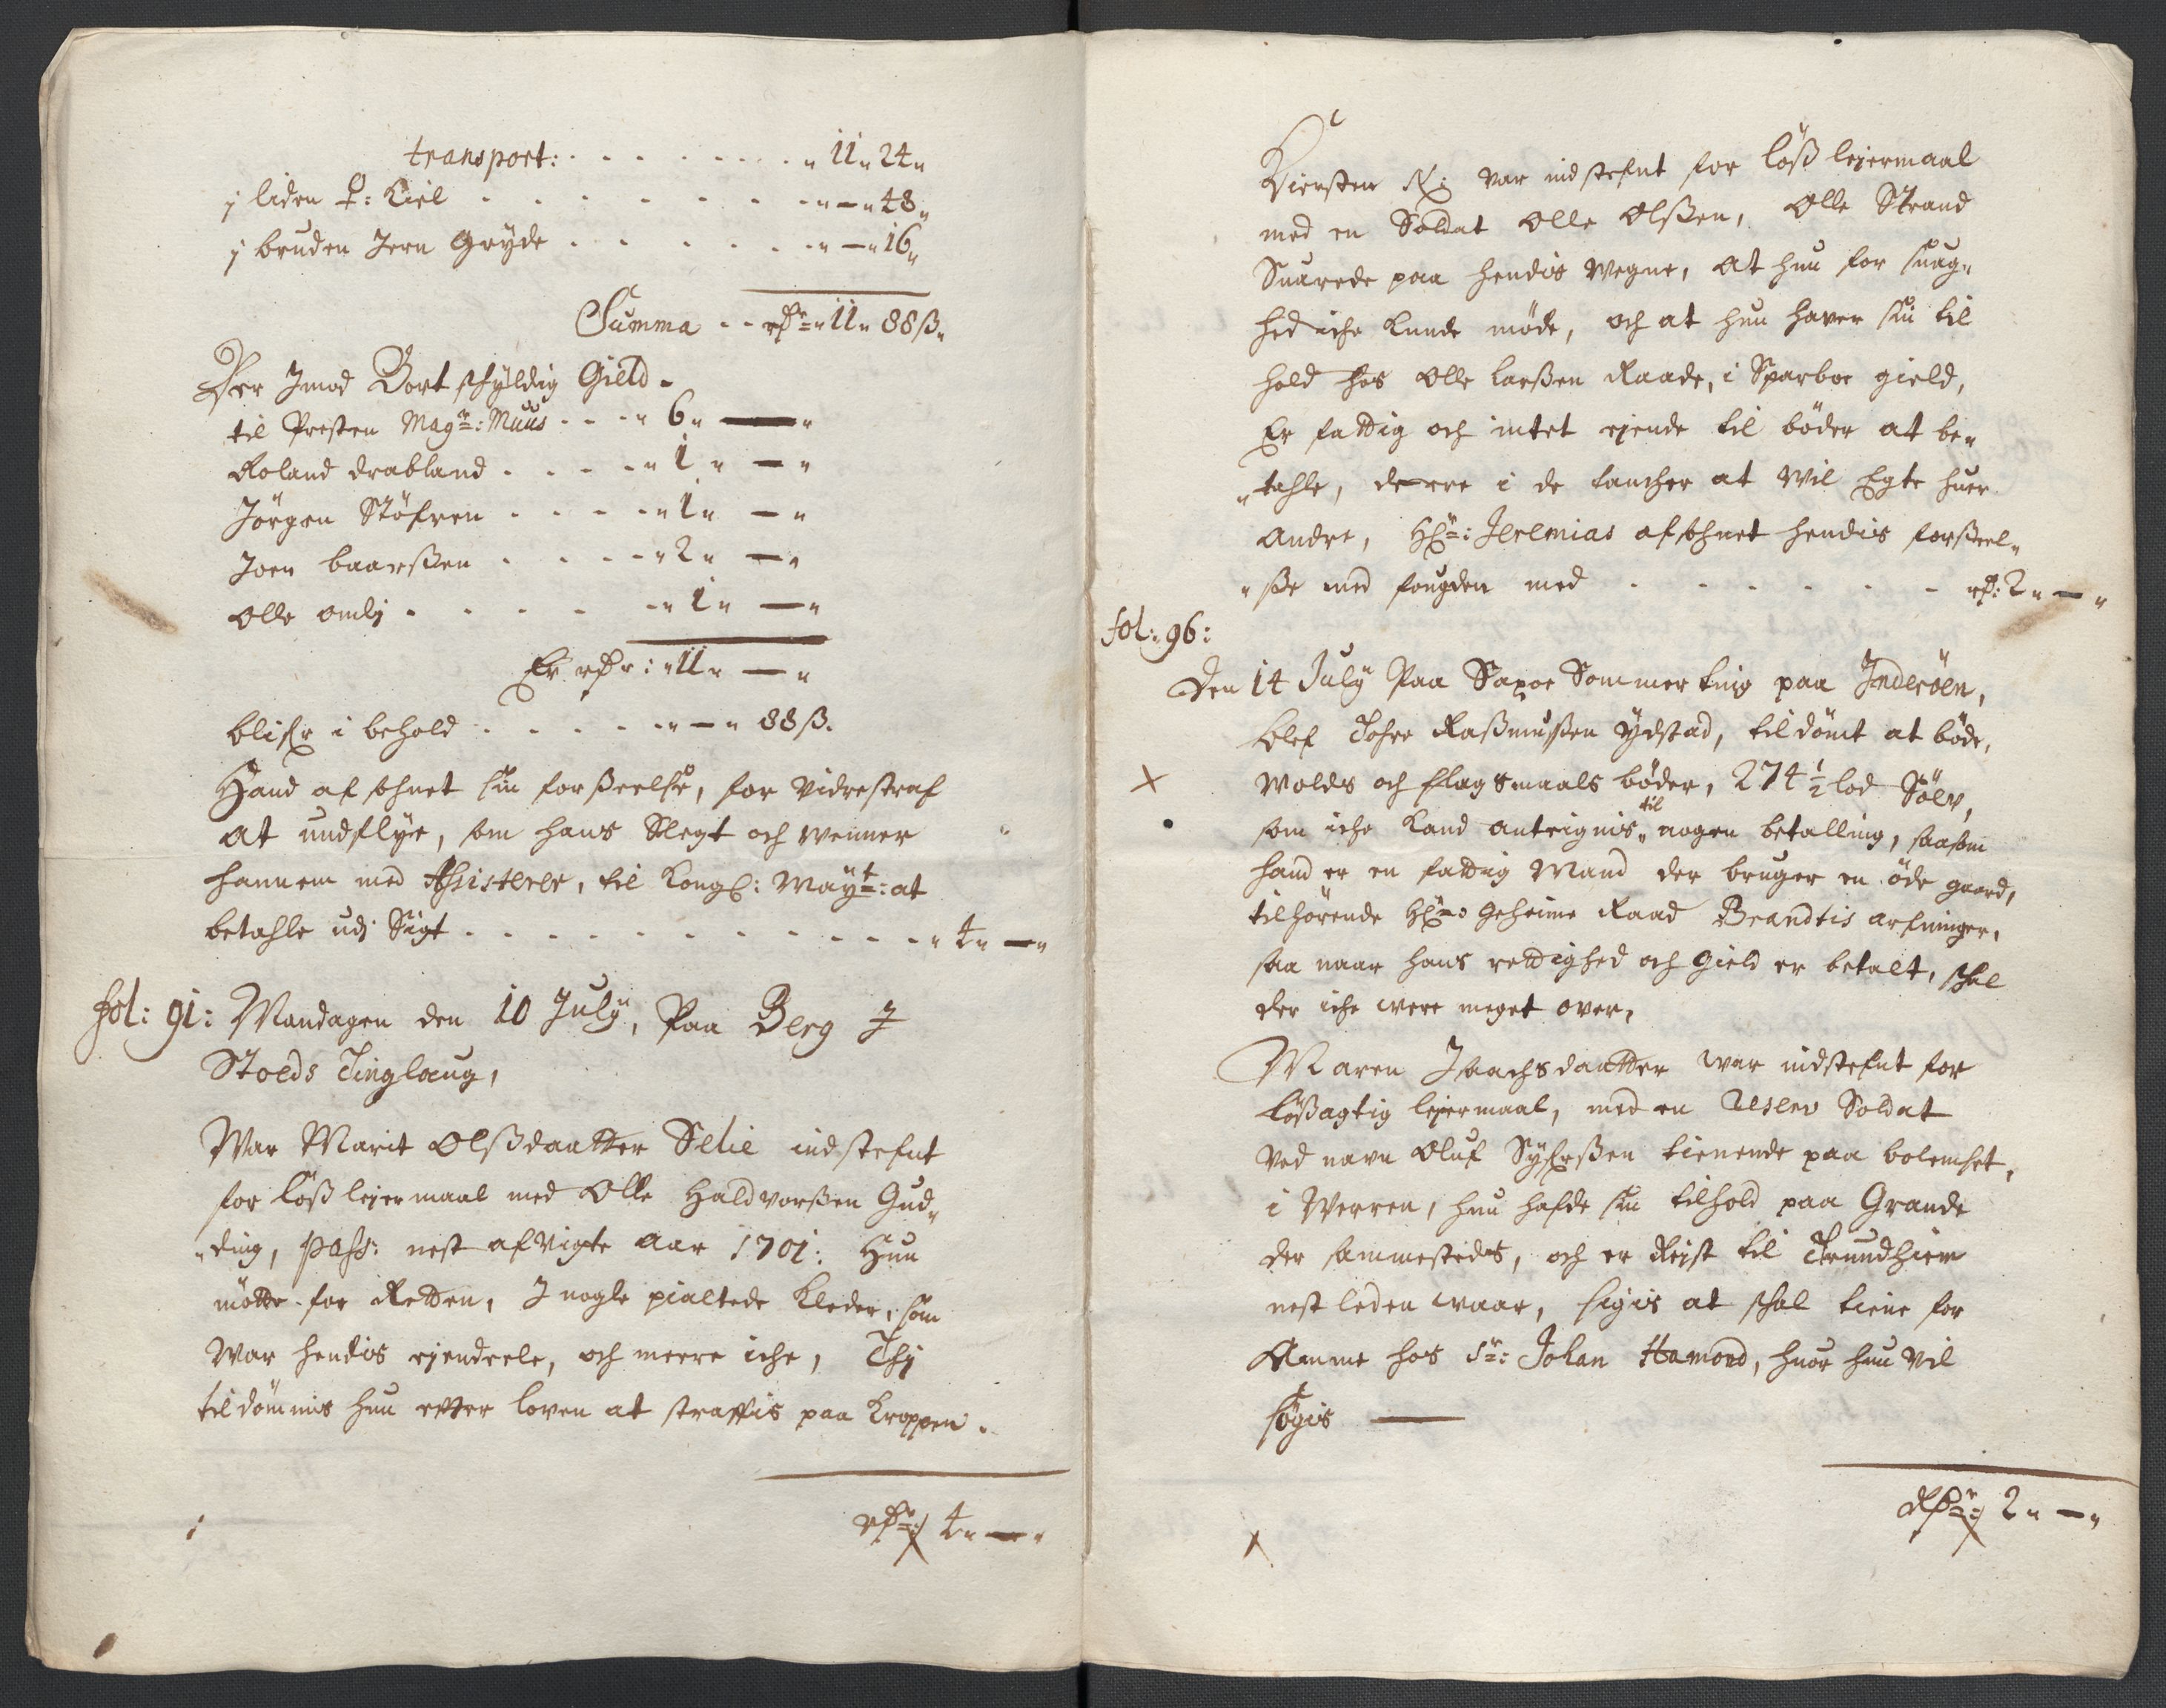 transport: . . . . . . . . . „ 11„ 24„
j liden ... Kiel . . . . . . . . „ — „ 48„
j bruden Jern Gryde . . . . . . „ — „ 16„
Summa . . rdr „ 11„ 88 ß„
Der Jmod Bort schyldig Gield.
til Presten Magr: Muus . . . „ 6„ — „
Roland drabland . . . . „ 1„ — „
Jörgen Stöfren . . . . „ 1„ — „
Joen baarßen . . . . „ 2„ — „
Olle omlj . . . . . „ 1„ — „
Er rdr: „ 11„ — „
blifr i behold . . . . . „ — „ 88 ß.
Hand af sohnet sin forßeelse, for videre straf
at undflye, som hans Slegt och venner
hannem med Assisterer, til Kongl: Mayt: at
betahle udj Sigt . . . . . . . . . . . „ 4„ — „
fol: 91: Mandagen den 10 July, Paa Berg J
Stoeds Tinglaug,
War Marit Olßdaatter Selie indstefnt
for löß lejermaal med Olle Haldvorßen Gud„
„ding, pass: nest afvigte aar 1701: Hun
mötte for Retten, J nogle pialtede Kleder, som
War hendis ejendeele, och meere iche, Thj
til dömmis hun efter loven at straffis paa Kroppen.
rdr: 4„ — „
Kiersten N: var indstefnt for löß lejermaal
med en Soldat Olle Olßen, Olle Strand
Suarede paa hendis Vegne, at hun for suag„
hed iche kunde möde, och at hun haver sin til
hold hos Olle Larßen Raade, i Sparboe gield,
Er fattig och intet ejende til böder at be„
„tahle, derre i de tancher at Wil Egte huer
andre, Hr: Jeremias afsohnet hendis forßeel„
„ße med fougden med . . . . . . rd: 2„ — „
fol: 96:
Den 14 July Paa Saxoe Sommer ting paa Inderöen,
blef Tohre Raßmußen Ydstad, til dömt at böde,
Wolds och flagsmaals böder, 274½ lod Sölv,
som iche kand antreignis til nogen betalling, saasom
hand er en fattig Mand der bruger en öde gaard,
tilhörende Hr: Geheime Raad Brandtis arfuinger,
saa naar hans rettighed och gield er betalt, schal
der iche were meget over,
Maren Jsachsdaatter war indstefnt for
lößagtig lejermaal, med en Reserv Soldat
Ved navn Oluf Syfrßen tienende paa bolemset,
i Werren, hun hafde sin tilhold paa Grande
der sammesteds, och er Rejst til Trundhiem
nest leden waar, sigis at schal tiene for
Amme hos Sr: Johan Hamond, huor hun vil
söges —
rdr: 2„ — „